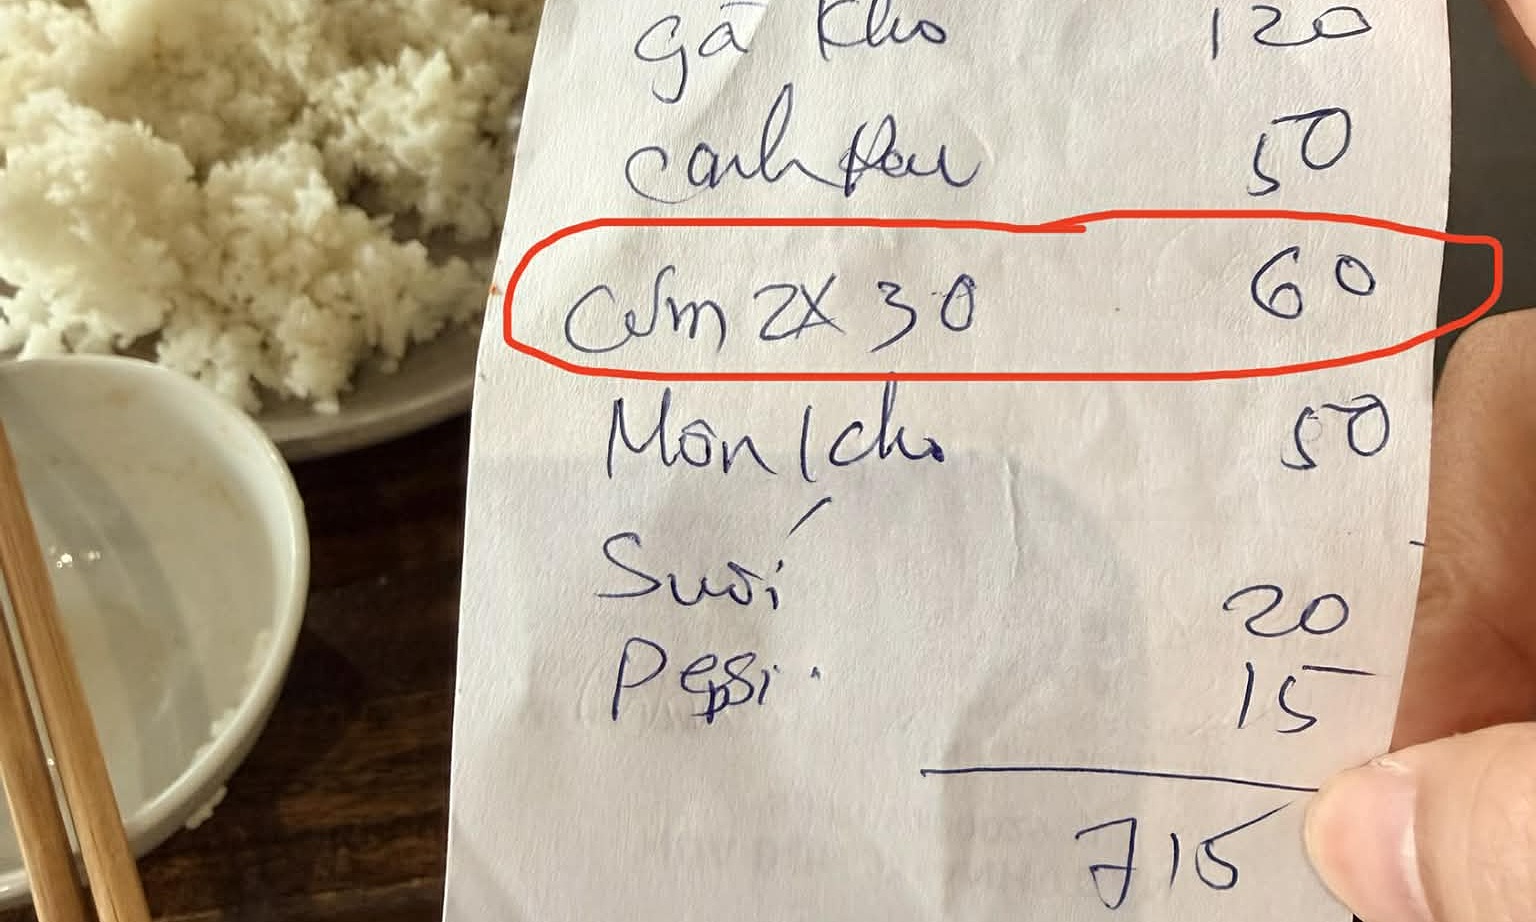 gà kho 120
canh rau 50
Cơm 2X30 60
Món 50
Suối 20
Pepsi 15
715